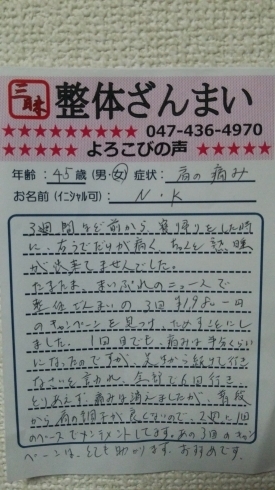 三昧 整体ざんまい
★★★★★★★ 047-436-4970
★★★★★★ よろこびの声 ★★★★★
年齢：45歳（男・女）症状：肩の痛み
お名前（イニシャル可） N・K
3週間ほど前から、寝返りをした時
に、右うでだけが痛く、ちゃんと熟睡
が出来てませんでした。
たまたま、まいぷれのニュースで
整体ざんまいの3回 ¥1980-
のキャンペーンを見つけ、ためすことにし
ました。1回目でも、痛みは半分くらい
になったのですが、先生から続けて行き
なさいと言われ、全部で6回行き
とりあえず、痛みは消えましたが、普段
から肩の調子が良くないので、2週に1回
のペースでメンテナンスしてます。あの3回のキャン
ペーンは、とても助かります。おすすめです。